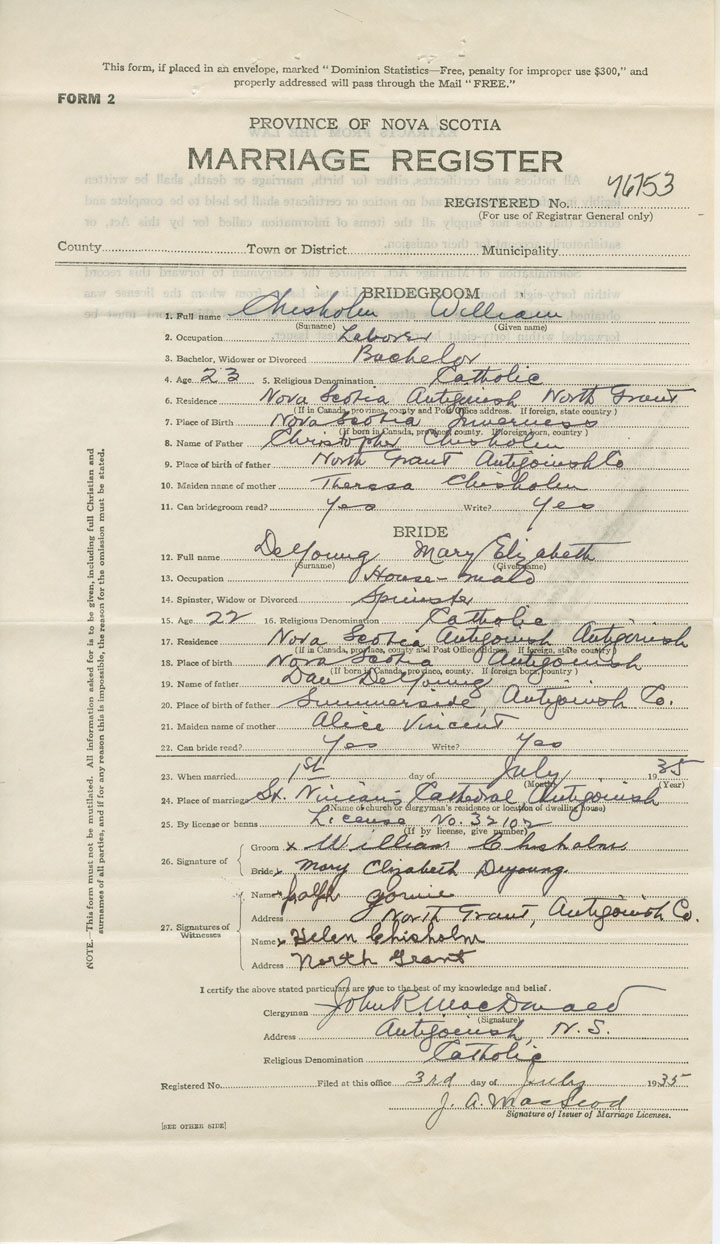 This form, if placed in an envelope, marked "Dominion Statistics—Free, penalty for improper use $300," and
properly addressed will pass through the Mail "FREE."
FORM 2
PROVINCE OF NOVA SCOTIA
MARRIAGE REGISTER
76753
REGISTERED No.
(For use of Registrar General only)
County Town or District Municipality
BRIDEGROOM
1. Full name Chisholm William
(Surname) (Given name)
2. Occupation Laborer
3. Bachelor, Widower or Divorced Bachelor
4. Age 23 5. Religious Denomination Catholic
6. Residence Nova Scotia Antigonish North Grant
(If in Canada, province, county and Post Office address. If foreign, state country)
7. Place of Birth Nova Scotia Inverness
(If born in Canada, province, county. If foreign born, country)
8. Name of Father Christopher Chisholm
9. Place of birth of father North Grant Antigonish Co
10. Maiden name of mother Theresa Chisholm
11. Can bridegroom read? Yes Write? Yes
BRIDE
12. Full name DeYoung Mary Elizabeth
(Surname) (Given name)
13. Occupation House-maid
14. Spinster, Widow or Divorced Spinster
15. Age 22 16. Religious Denomination Catholic
17. Residence Nova Scotia Antigonish Antigonish
(If in Canada, province, county and Post Office address. If foreign, state country)
18. Place of birth Nova Scotia Antigonish
(If born in Canada, province, county. If foreign born, country)
19. Name of father Dan DeYoung
20. Place of birth of father Summerside, Antigonish Co.
21. Maiden name of mother Alice Vincent
22. Can bride read? Yes Write? Yes
23. When married 1st day of July 1935
(Month) (Year)
24. Place of marriage St. Ninian's Cathedral Antigonish
(Name of church or clergyman's residence or location of dwelling house)
25. By license or banns License No. 32102
(If by license, give number)
26. Signature of
Groom x William Chisholm
Bride x Mary Elizabeth Deyoung.
27. Signatures of Witnesses
Name x Ralph
Address North Grant, Antigonish Co.
Name x Helen Chisholm
Address North Grant
I certify the above stated particulars are true to the best of my knowledge and belief.
Clergyman John R. MacDonald
(Signature)
Address Antigonish, N.S.
Religious Denomination Catholic
Registered No. Filed at this office 3rd day of July 1935
J. A. MacLeod
Signature of Issuer of Marriage Licenses.
[SEE OTHER SIDE]
NOTE.—This form must not be mutilated. All information asked for is to be given, including full Christian and
surnames of all parties, and if for any reason this is impossible, the reason for the omission must be stated.